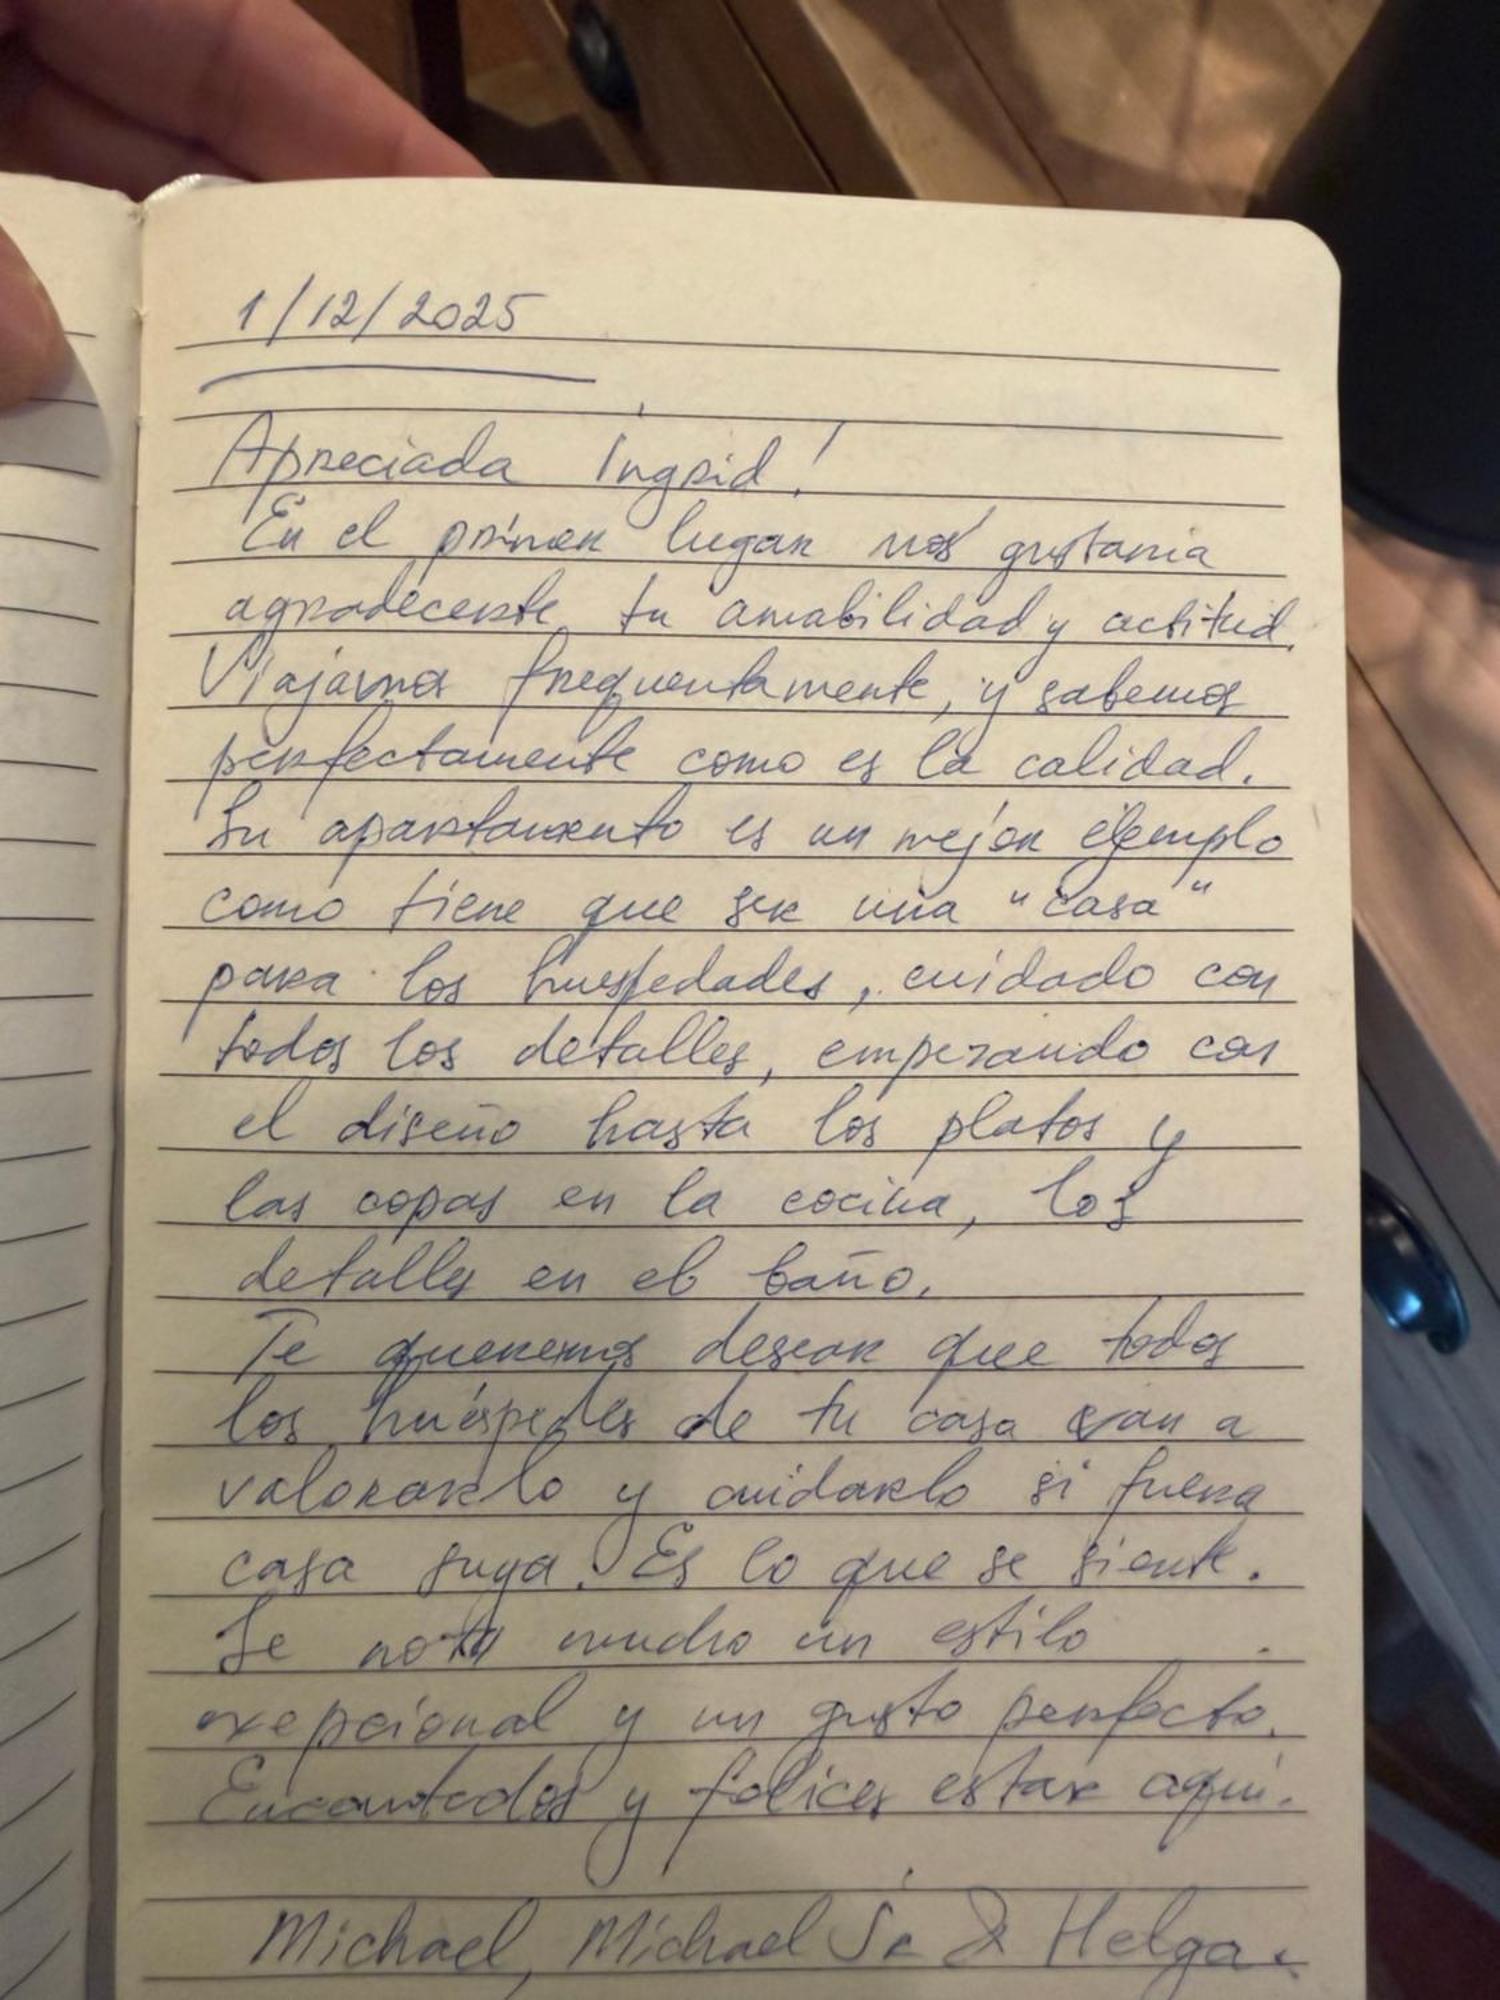 1/12/2025
Apreciada Ingrid!
En el primer lugar nos gustaria
agradecerte tu amabilidad y actitud.
Viajamos frequentamente, y sabemos
perfectamente como es la calidad.
Su apartamento es un mejor ejemplo
como tiene que ser una "casa"
para los huespedades, cuidado con
todos los detalles, empezando con
el diseño hasta los platos y
las copas en la cocina, los
detalles en el baño.
Te queremos desear que todos
los huéspedes de tu casa van a
valorarlo y cuidarlo si fuera
casa suya. Es lo que se siente.
Se nota mucho un estilo
exepcional y un gusto perfecto.
Encantados y felices estar aquí.
Michael, Michael Sr & Helga.